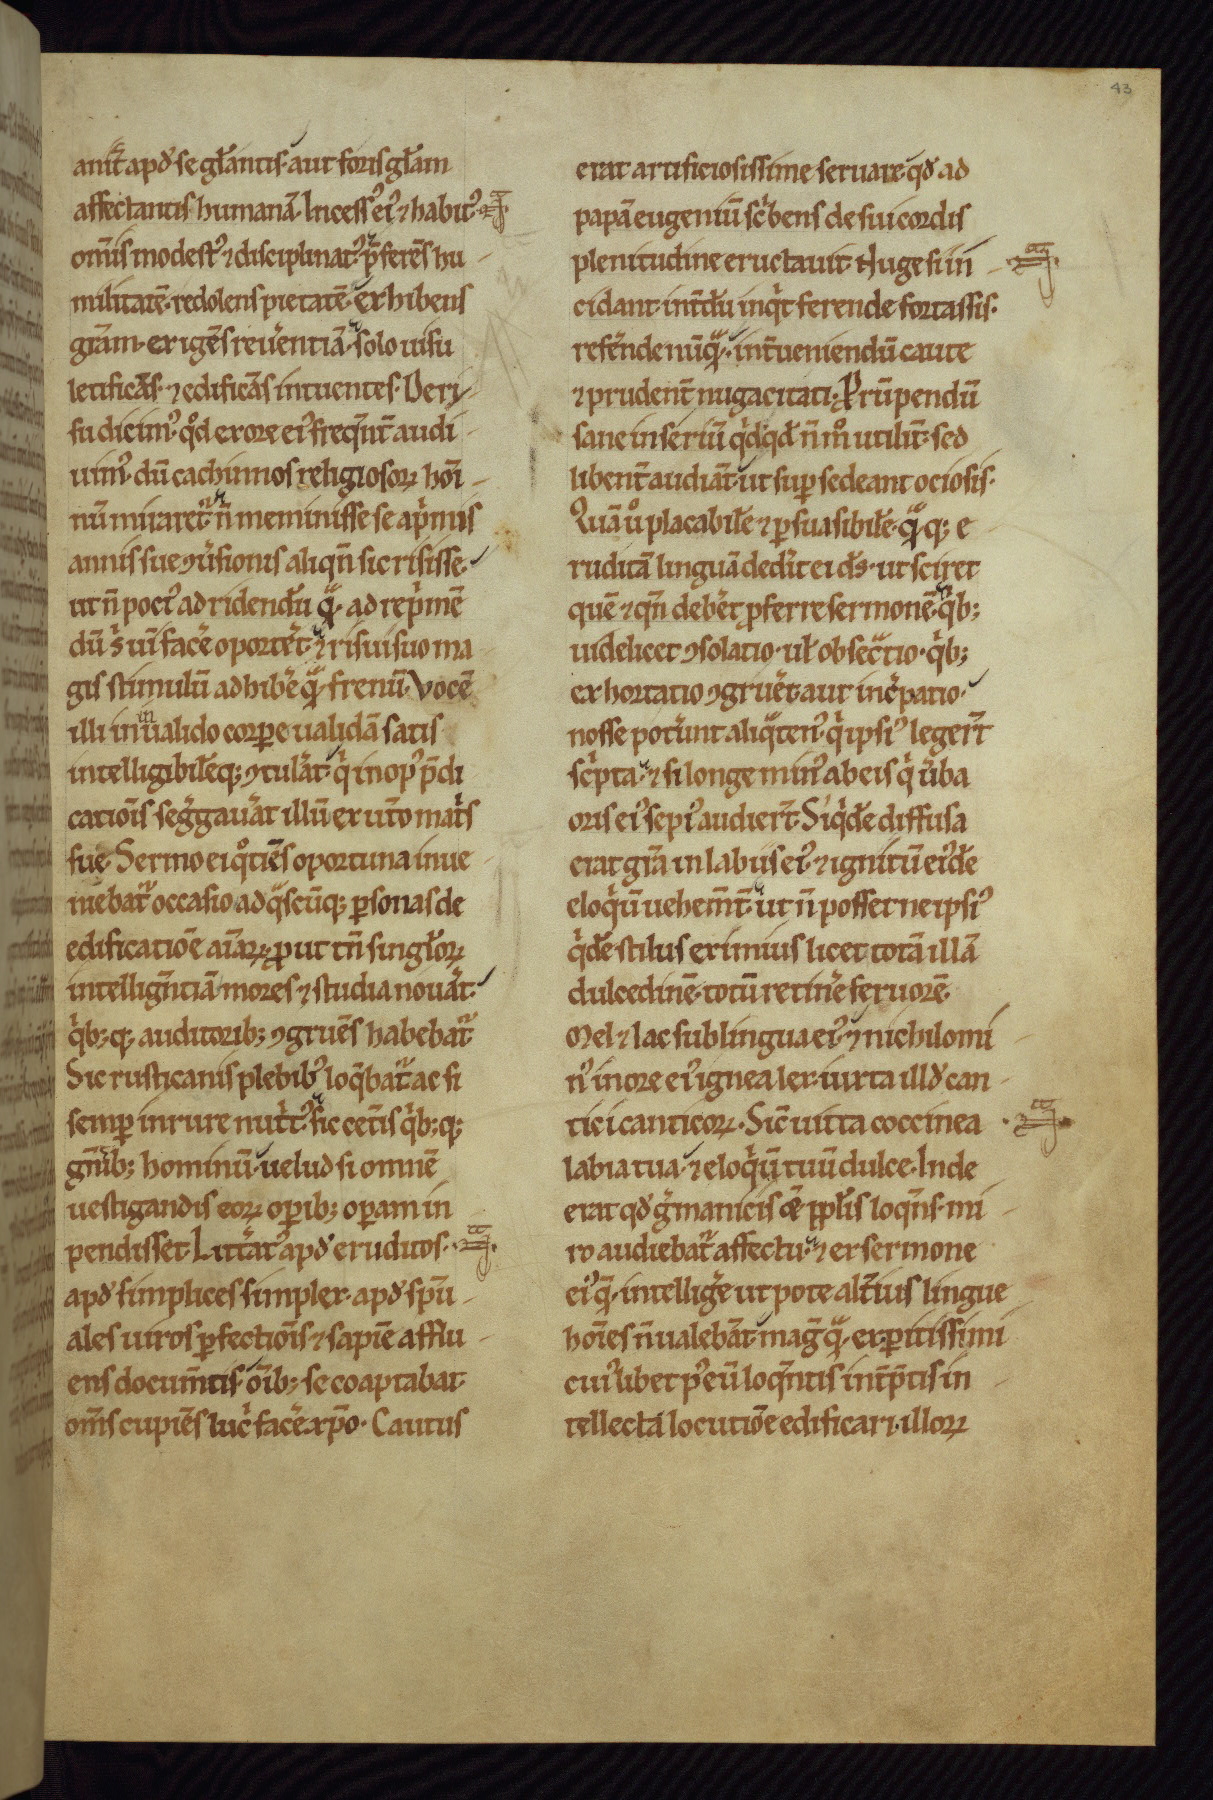 43
anit̄ apđ se gl̄antis· aut foris gl̄am
affectantis humanā· Incess᾽ ei᾽ ⁊ habit᾽
om̄is modest᾽ ⁊ disciplinat᾽· p̄ferēs hu
militatē· redolens pietatē· exhibens
grām· exigēs reu̾entiā· solo uisu
letificās· ⁊ edificās intuentes· De ri
su dicim᾽ qđ ex ore ei᾽ freqn̄t̄ audi
uim᾽· dū cachinnos religiosoꝝ hoī
nū miraret᷑· n̄ meminisse se a pͥmis
annis sue ꝯu̾sionis aliqn̄ sic risisse·
ut n̄ poci᾽ ad ridendū qᷓ ad repͥmē
dū sͥ uim̄ face̾ oporte̾t· ⁊ risui suo ma
gis stimulū adhibe̾ qᷓ frenū· Vocē
illi in inualido corꝑe ualidā satis
intelligibilēq; ꝯtula̾t· qͥ in op᾽ p̄di
catiōis segͤgaua̾t illū ex ut̾o matͥs
sue· Sermo ei qͦtiēs oportuna inue
niebat᷑ occasio ad qᷓscūq; ꝑsonas de
edificatiōe aīaꝝ· ꝓut tn̄ singl̄oꝝ
intelligntiā mores ⁊ studia noua̾t·
qͥb;q; auditorib; ꝯgruēs habebat᷑·
Sic rusticanis plebib᾽ loq̄bat᷑ ac si
semꝑ in rure nutͥt᾽· sic cet̾is qͥb;q;
gn̄ib; hominū· uelud si omnē
uestigandis eoꝝ oꝑib; oꝑam in
pendisset· Litt̾at᾽ apđ eruditos·
apđ simplices simplex· apđ spū
ales uiros ꝑfectiōis ⁊ sapiē afflu
ens docum̄tis· oīb; se coaptabat
om̄s cupiēs luc̾ͥface̾ xp̄o· Cautus
erat artificiosissime seruare· qđ ad
papā eugeniū scͥbens de sui cordis
plenitudine eructauit· Nuge si in
cidant· int̾dū inqͥt ferende fortassis·
refe̾nde nūqᷓ· int̾ueniendū caute
⁊ prudent̾ nugacitati· Prūpendū
sane in seriū qͥd qđ n̄ mͦ utilit̾· sed
libent̾ audiāt· ut suꝑsedeant ociosis·
Quā uͦ placabilē ⁊ ꝑsuasibilē· qᷓq; e
ruditā linguā dedͥt ei d̄s· ut sciret
quē ⁊ qn̄ debe̾t ꝓferre sermonē· qͥb;
uidelicet ꝯsolatio· ul̄ obsecͣtio· qͥb;
exhortatio ꝯgrue̾t· aut incͤpatio·
nosse potu̾unt aliqᷓten᾽ qͥ ipsi᾽ leger̄t
scͥpta· ⁊ si longe min᾽ ab eis qͥ u̾ba
oris ei᾽ sepi᾽ audier̄t· Siqͥdē diffusa
erat gr̄a in labiis ei᾽· ⁊ ignitū ei᾽dē
eloqͥū uehem̄t̾· ut n̄ posset ne ipsi᾽
qͥdē stilus eximius licet totā illā
dulcedinē· totū retine̾ feruorē·
Mel ⁊ lac sub lingua ei᾽· ⁊ nichilomi
n᾽ in ore ei᾽ ignea lex· iuxta illđ can
tici canticoꝝ· Sic̄ uitta coccinea
labia tua· ⁊ eloqͥū tuū dulce· Inde
erat qđ ge̾manicis cē̄ ppl̄is loqn̄s· mi
ro audiebat᷑ affectu· ⁊ ex sermone
ei᾽ q̄ intellige̾ utpote alt̾ius lingue
hoīes n̄ ualebāt· magͥ qᷓ ex ꝑitissimi
cui᾽libet p᾽ eū loqn̄tis int̾p̄tis in
tellecta locutiōe edificari· illoꝝ